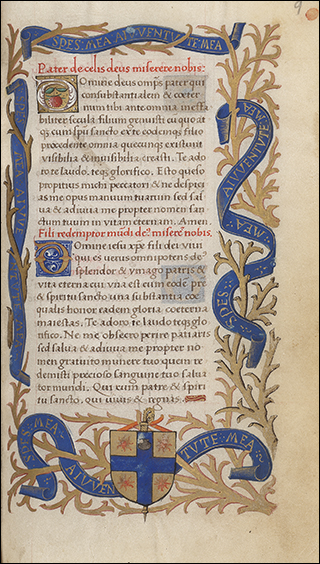 9
SPES · MEA AIVVENTVTE · MEA
Pater de celis deus miserere nobis:
Domine deus omps pater qui
consubstantialem & coeter
num tibi ante omnia ineffa
biliter secula filium genuisti cu quo at
qz cum spu sancto ex te eodemqz filio
procedente omnia quecunqz existunt
visibilia & inuisibilia creasti. Te ado
ro te laudo. teqz glorifico. Esto queso
propitius michi peccatori & ne despici
as me opus manuum tuarum sed sal
ua & adiuua me propter nomen san
ctum tuum in vitam eternam. Amen.
Fili redemptor mudi de9 miserere nobis.
Domine iesu xpe fili dei viui
qui es verus omnipotens de9
splendor & ymago patris &
vita eterna cui vna est cum eode pre
& spiritu sancto vna substantia coe
qualis honor eadem gloria coeterna
maiestas. Te adoro te laudo teqz glo
rifico. Ne me obsecro perire patiaris
sed salua & adiuua me propter no
men gratuito munere tuo quem re
demisti precioso sanguine tuo salua
tor mundi. Qui cum patre & spiri
tu sancto, qui viuis & regnas.
SPES · MEA · AIVVENTVTE MEA
SPES MEA AIVVEN TVTE · MEA